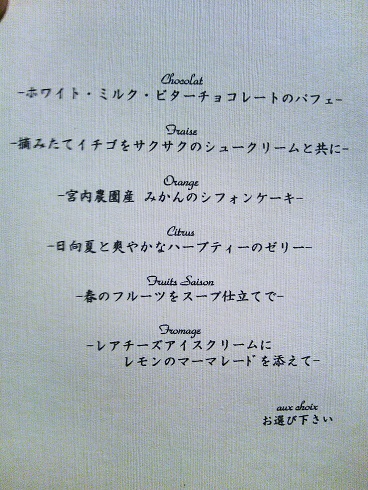 Chocolat
-ホワイト・ミルク・ビターチョコレートのパフェ-
Fraise
-摘みたてイチゴをサクサクのシュークリームと共に-
Orange
-宮内農園産 みかんのシフォンケーキ-
Citrus
-日向夏と爽やかなハーブティーのゼリー-
Fruits Saison
-春のフルーツをスープ仕立てで-
Fromage
-レアチーズアイスクリームに
レモンのマーマレードを添えて-
aux choix
お選び下さい